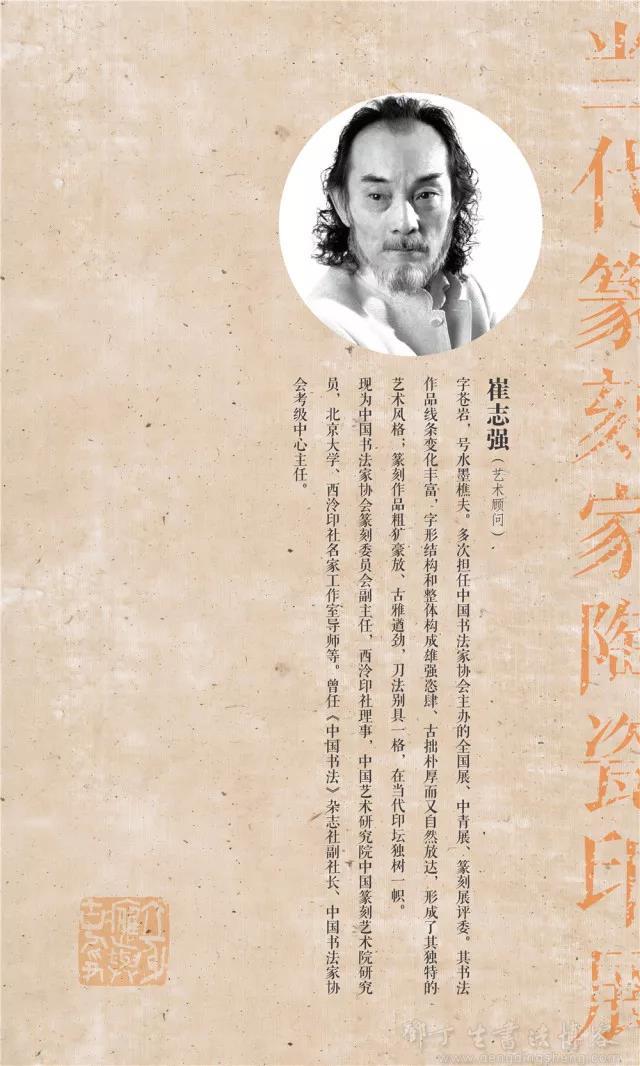 当代篆刻家陶瓷印展
崔志强（艺术顾问）
字苍岩，号水墨樵夫。多次担任中国书法家协会主办的全国展、中青展、篆刻展评委。其书法
作品线条变化丰富，字形结构和整体构成雄强恣肆、古拙朴厚而又自然放达，形成了其独特的
艺术风格；篆刻作品粗犷豪放、古雅遒劲，刀法别具一格，在当代印坛独树一帜。
现为中国书法家协会篆刻委员会副主任，西泠印社理事，中国艺术研究院中国篆刻艺术院研究
员，北京大学、西泠印社名家工作室导师等。曾任《中国书法》杂志社副社长、中国书法家协
会考级中心主任。
邓丁生书法博客
www.dengdingsheng.com